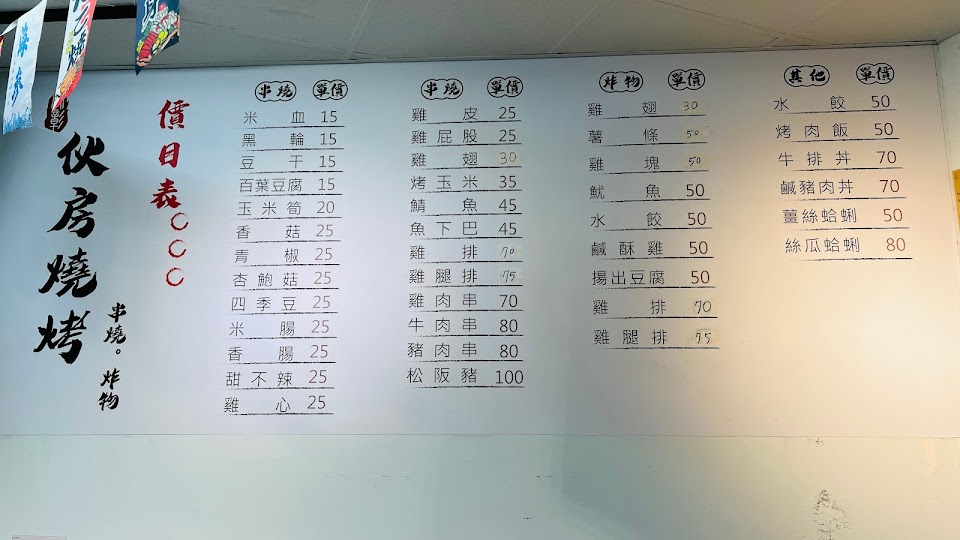 彰
伙房燒烤
串燒。炸物
價目表
串燒 單價
米血 15
黑輪 15
豆干 15
百葉豆腐 15
玉米筍 20
香菇 25
青椒 25
杏鮑菇 25
四季豆 25
米腸 25
香腸 25
甜不辣 25
雞心 25
串燒 單價
雞皮 25
雞屁股 25
雞翅 30
烤玉米 35
鯖魚 45
魚下巴 45
雞排 70
雞腿排 75
雞肉串 70
牛肉串 80
豬肉串 80
松阪豬 100
炸物 單價
雞翅 30
薯條 50
雞塊 50
魷魚 50
水餃 50
鹹酥雞 50
揚出豆腐 50
雞排 70
雞腿排 75
其他 單價
水餃 50
烤肉飯 50
牛排丼 70
鹹豬肉丼 70
薑絲蛤蜊 50
絲瓜蛤蜊 80